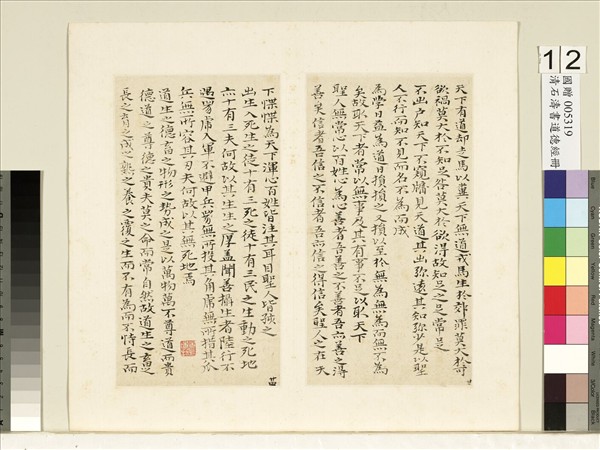 12
國贈 005319
清石濤書道德經冊
天下有道却走馬以糞天下無道戎馬生於郊罪莫大於可
欲禍莫大於不知足咎莫大於欲得故知足之足常足
不出户知天下不窺牖見天道其出弥遠其知弥少是以聖
人不行而知不見而名不為而成
為學日益為道日損損之又損以至於無為無為而無不為
矣故取天下者常以無事及其有事不足以取天下
聖人無常心以百姓心為心善者吾善之不善者吾亦善之得
善矣信者吾信之不信者吾亦信之得信矣聖人之在天
下惵惵為天下渾心百姓皆注其耳目聖人皆孩之
出生入死生之徒十有三死之徒十有三民之生動之死地
亦十有三夫何故以其生生之厚盖聞善攝生者陸行不
遇兕虎入軍不避甲兵兕無所投其角虎無所措其爪
兵無所容其刃夫何故以其無死地焉
道生之德畜之物形之勢成之是以萬物莫不尊道而貴
德道之尊德之貴夫莫之命而常自然故道生之畜之
長之育之成之熟之養之覆之生而不有為而不恃長而
Blue
Cyan
Green
Yellow
Red
Magenta
White
3/Color
Black